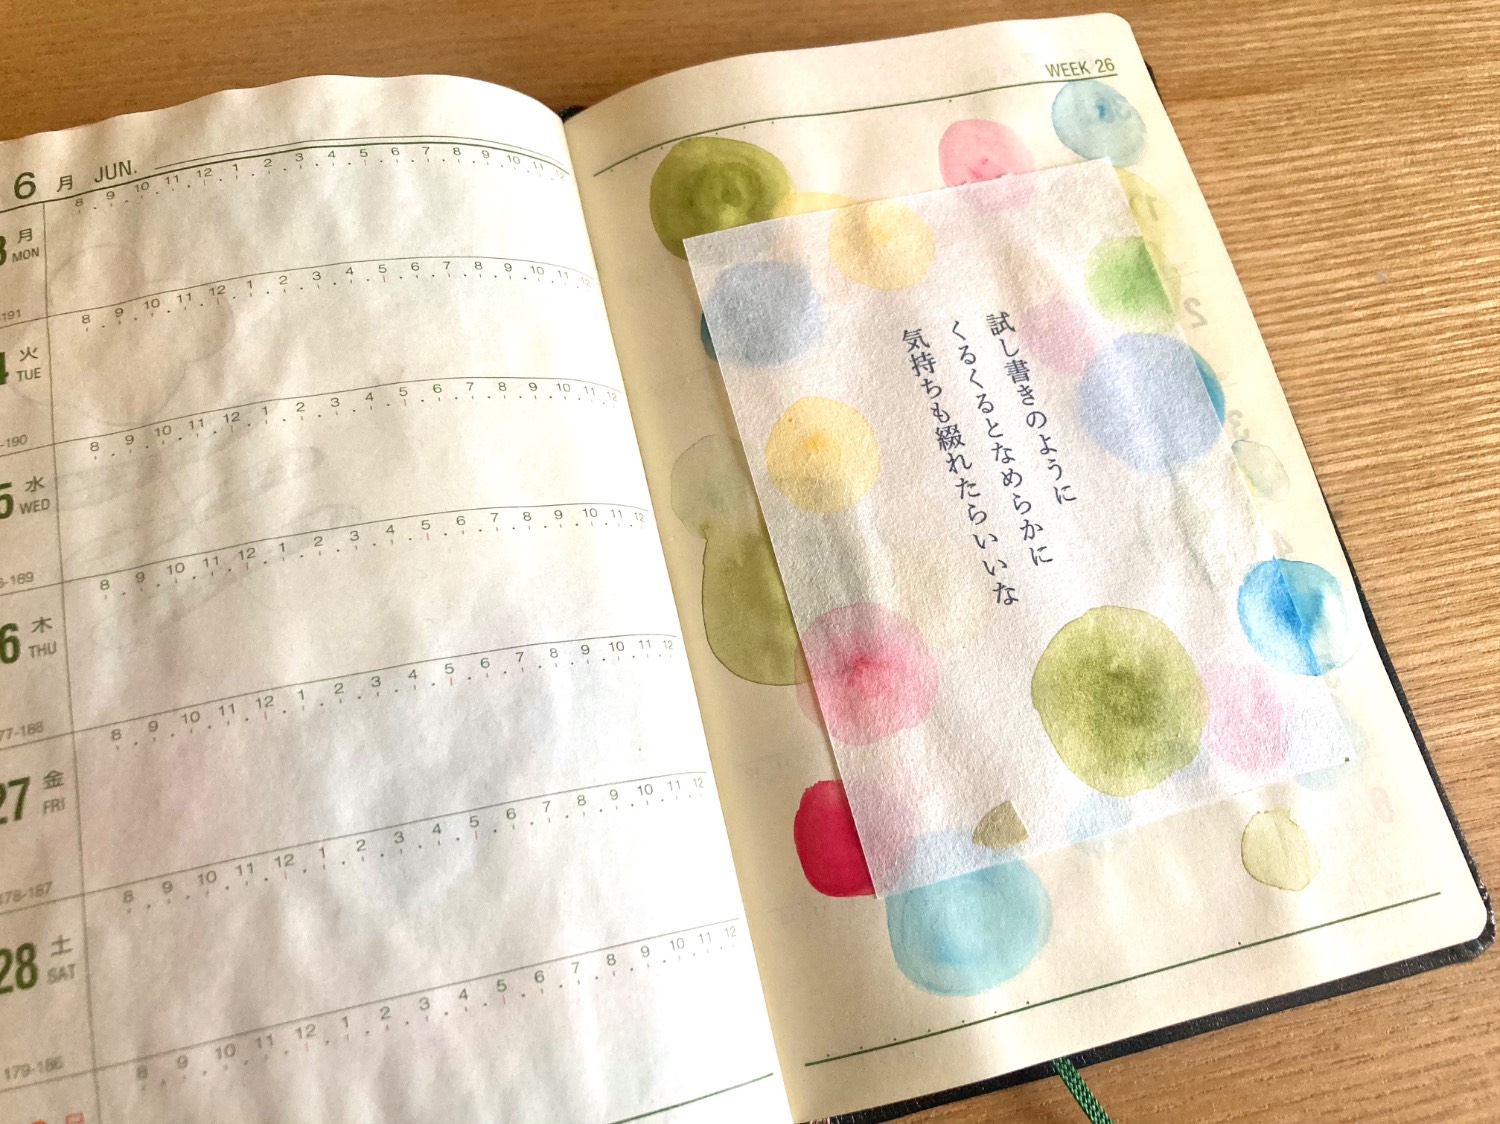 6 月 JUN.
8 9 10 11 12 1 2 3 4 5 6 7 8 9 10 11 12
月
MON
-191
8 9 10 11 12 1 2 3 4 5 6 7 8 9 10 11 12
火
TUE
-190
8 9 10 11 12 1 2 3 4 5 6 7 8 9 10 11 12
水
WED
-189
8 9 10 11 12 1 2 3 4 5 6 7 8 9 10 11 12
木
THU
77-188
8 9 10 11 12 1 2 3 4 5 6 7 8 9 10 11 12
27 金
FRI
178-187
8 9 10 11 12 1 2 3 4 5 6 7 8 9 10 11 12
28 土
SAT
179-186
8 9 10 11 12 1 2 3 4 5 6 7 8 9 10 11 12
日
WEEK 26
試し書きのように
くるくるとなめらかに
気持ちも綴れたらいいな